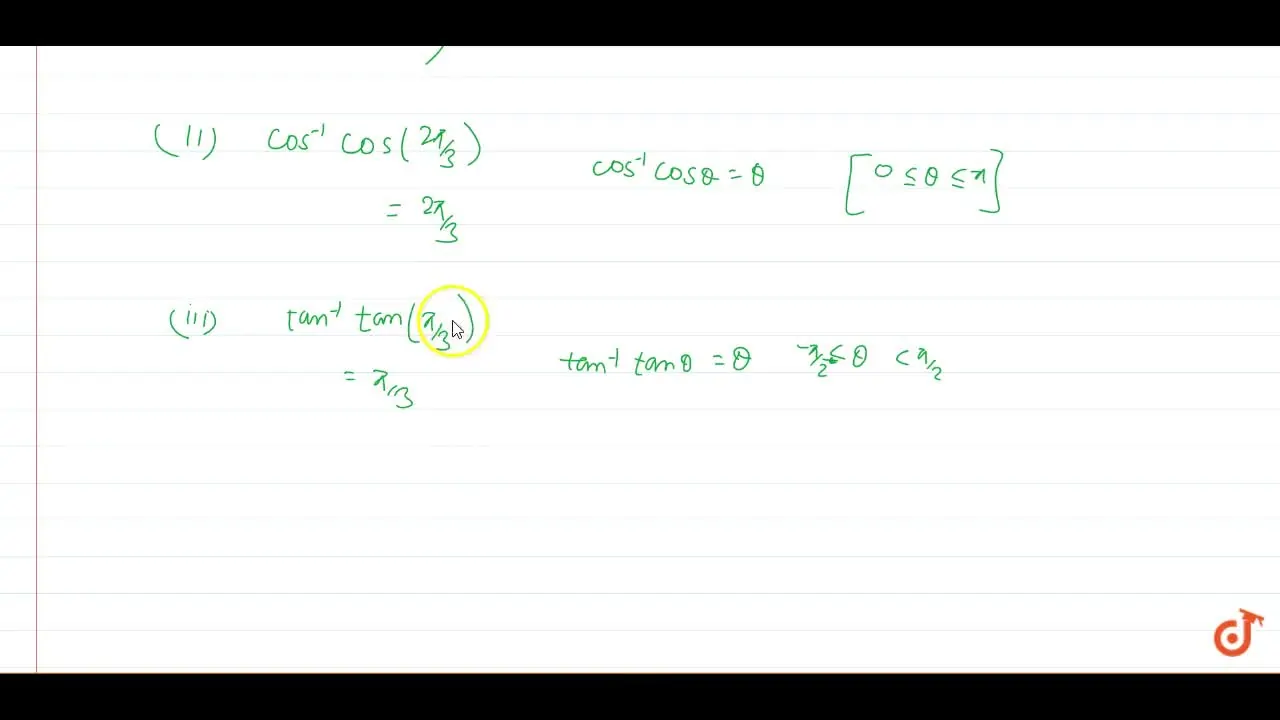 (ii) cos⁻¹ cos(2π/3)
cos⁻¹ cosθ = θ [0 ≤ θ ≤ π]
= 2π/3
(iii) tan⁻¹ tan(π/3)
tan⁻¹ tanθ = θ -π/2 < θ < π/2
= π/3